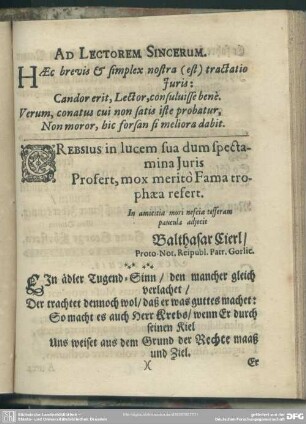 AD LECTOREM SINCERUM.
HÆc brevis & simplex nostra (est) tractatio
Juris:
Candor erit, Lector, consuluisse benè.
Verum, conatus cui non satis iste probatur,
Non moror, hic forsan si meliora dabit.
CREBSIUS in lucem sua dum specta-
mina Juris
Profert, mox meritò Fama tro-
phæa refert.
In amicitiæ mori nescia tesseram
paucula adjecit
Balthasar Cierl/
Proto-Not. Reipubl. Patr. Gorlic.
EIn ädler Tugend-Sinn/ den mancher gleich
verlachet/
Der trachtet dennoch wol/ daß er was guttes machet:
So macht es auch Herr Krebs/ wenn Er durch
seinen Kiel
Uns weiset aus dem Grund der Rechte maaß
und Ziel.
)( Er